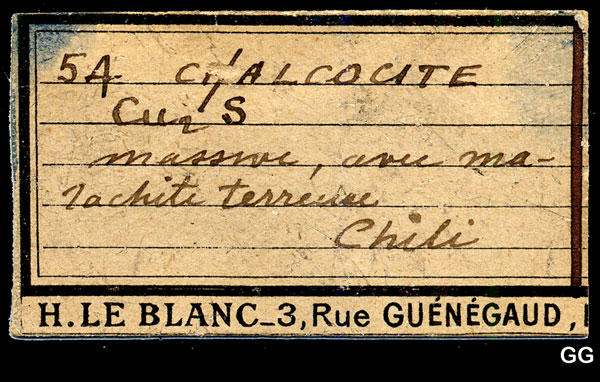 5A CHALCOCITE
Cu2S
massive, avec ma-
lachite terreuse
Chili
H. LE BLANC_3, Rue GUÉNÉGAUD,
GG